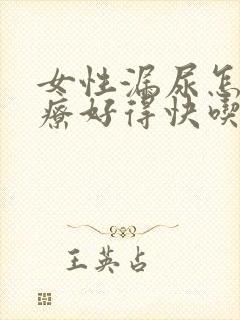 女性漏尿怎
疗好得快喫
王英占